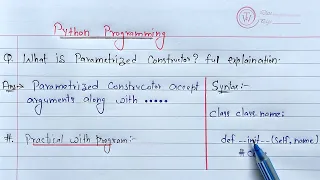 Python Programming
Q. What is Parametrized Constructor? full explaination.
Ans→ Parametrized Constructor accept
arguments along with .....
#. Practical with program:-
Syntax:-
class class name:
def __init__(self, name)
#